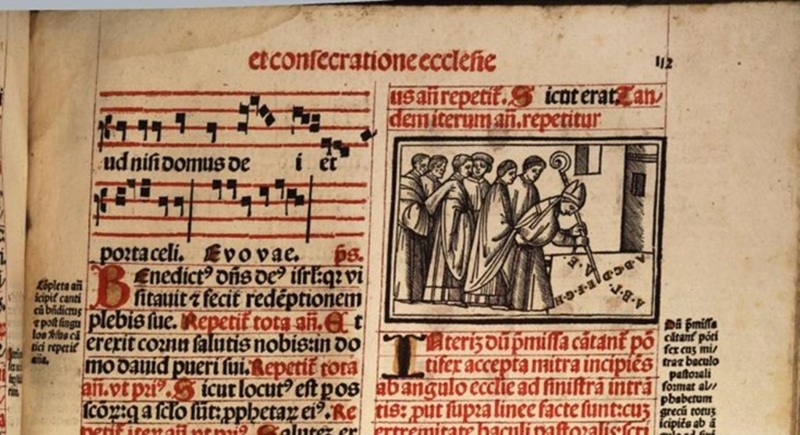 et consecratione ecclesie
112
ud nisi domus de i et
porta celi. Evovae. ps.
Benedictꝰ dñs deꝰ isrl: qr vi
sitauit ⁊ fecit redẽptionem
plebis sue. Repetit̃ tota añ. Et
erexit cornu salutis nobis: in do
mo dauid pueri sui. Repetit̃ tota
añ. vt priꝰ. Sicut locutꝰ est p os
scõꝝ: q a sclo sũt: ꝓphetaꝝ eiꝰ. Re
petit̃ iteꝝ añ vt priꝰ. Salutẽ ex
Cõpleta añ
icipit̃ canti
cũ bñdictus
⁊ post singu
los
tici repetit̃
aña.
us añ repetit̃. Sicut erat. Tan
dem iterum añ. repetitur
A·B·C·D·E·F·G·H
A·B·
INteriꝫ dũ p̃missa cãtant̃ põ
tifex accepta mitra incipiẽs
ab angulo ecclie ad sinistrã intrã
tis: put supra linee facte sunt: cuꝫ
extremitate baculi pastoralis: scri
Dũ p̃missa
cãtant̃ põti
fex cuꝫ mi
tra ⁊ baculo
pastorali
format al
phabetum
grecũ totuꝫ
icipiẽs ab ã